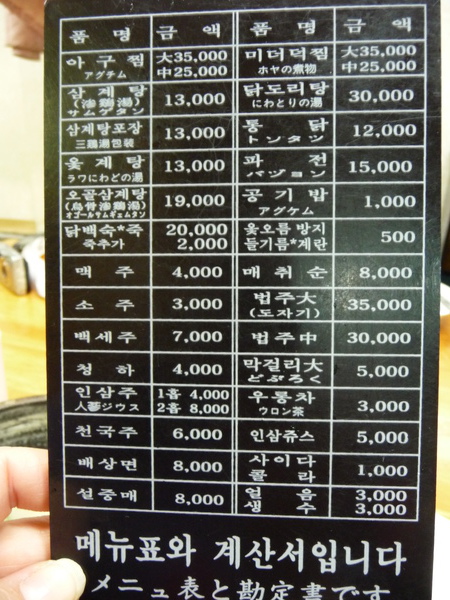 품 명 금 액 품 명 금 액
아 구 찜 大35,000 미더덕찜 大35,000
アグケム 中25,000 ホヤの煮物 中25,000
삼 계 탕 13,000 닭도리탕 30,000
サムゲタン にわとりの湯
삼계탕포장 13,000 통 닭 12,000
三鶏湯包装 トンタク
옻 계 탕 13,000 파 전 15,000
ラワにわとりの湯 パヅョン
오골삼계탕 19,000 공 기 밥 1,000
アグケム
닭백숙*죽 20,000 옻오름방지 500
죽추가 2,000 들기름*계란
맥 주 4,000 매 취 순 8,000
소 주 3,000 법주大 35,000
(도자기)
백 세 주 7,000 법 주 中 30,000
청 하 4,000 막걸리大 5,000
どぶろく
인 삼 주 1홉 4,000 우 롱 차 3,000
人蔘ジウス 2홉 8,000 ウロン茶
천 국 주 6,000 인삼쥬스 5,000
배 상 면 8,000 사이다 1,000
콜 라
설 중 매 8,000 얼 음 3,000
생 수 3,000
메뉴표와 계산서입니다
メニュ表と勘定書です